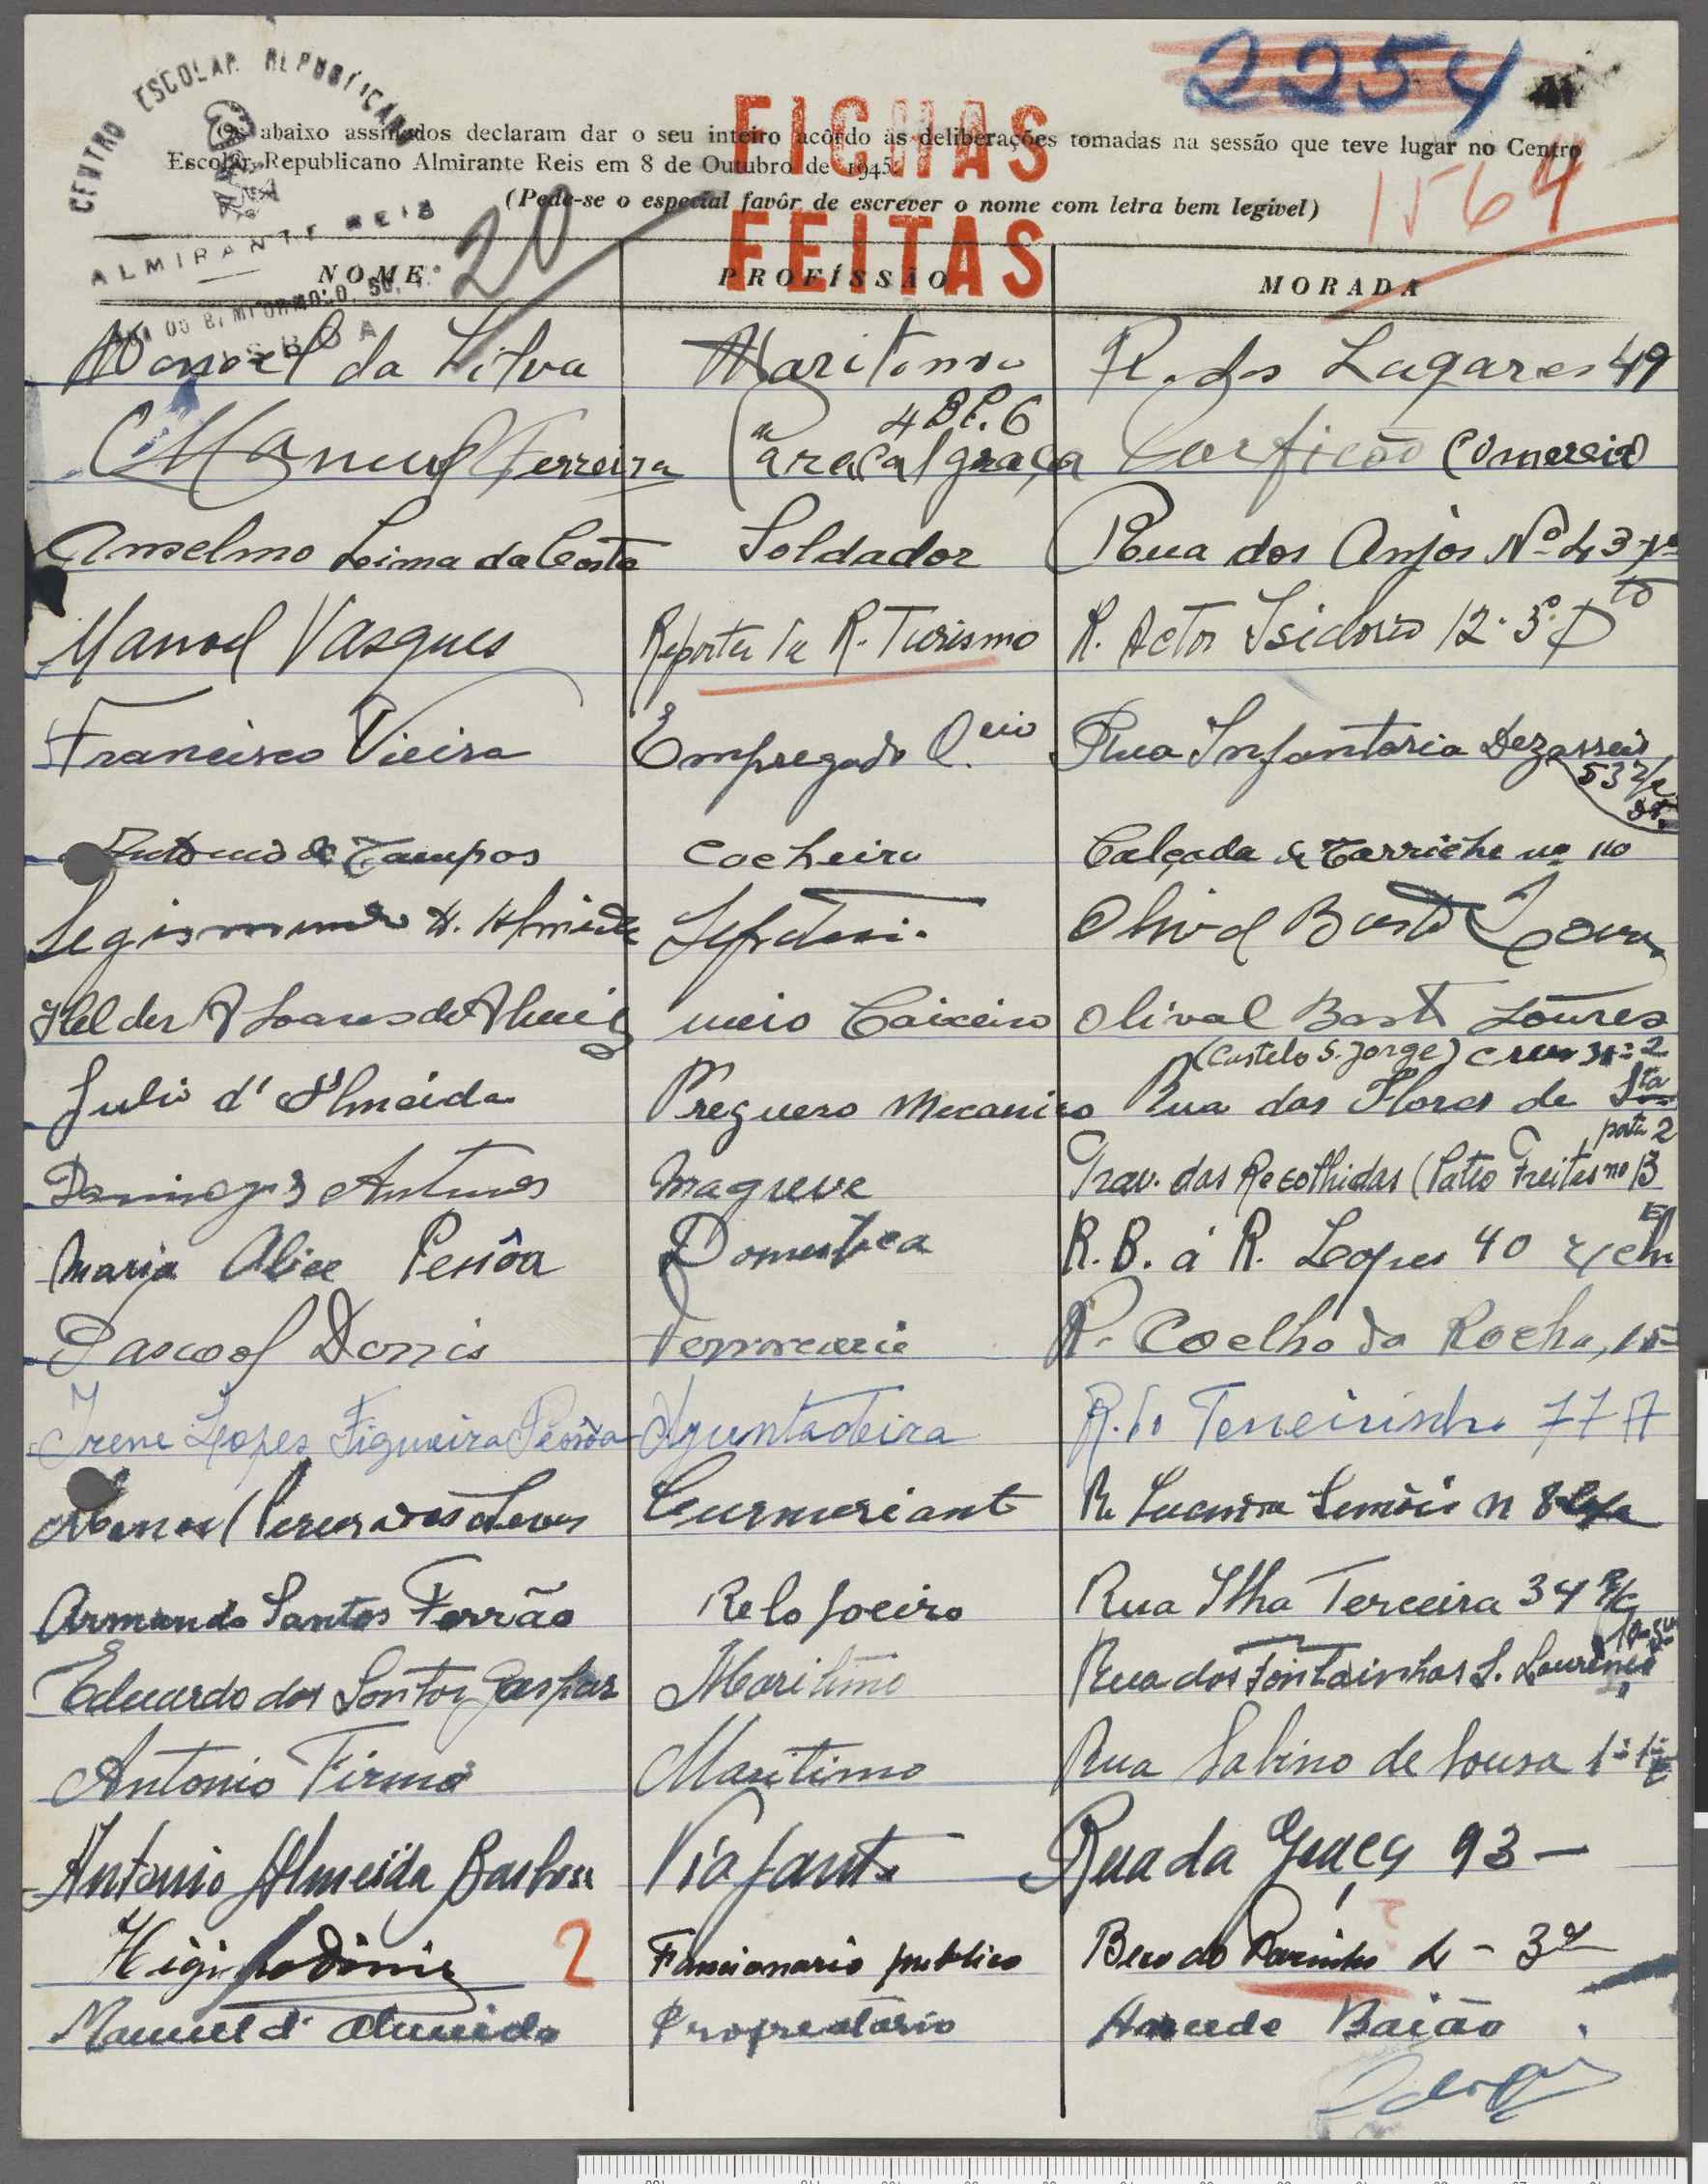 CENTRO ESCOLAR REPUBLICANO
ALMIRANTE REIS
2254
FICHAS
FEITAS
Os abaixo assinados declaram dar o seu inteiro acôrdo às deliberações tomadas na sessão que teve lugar no Centro
Escolar Republicano Almirante Reis em 8 de Outubro de 1945.
(Pede-se o especial favôr de escrever o nome com letra bem legível)
1564
20
NOME PROFISSÃO MORADA
Manoel da Silva Maritimo R. dos Lagares 49
4 BC. 6
Manuel Ferreira Graça Comercio
Anselmo Leima da Costa Soldador Rua dos Anjos Nº 43
Manoel Vasques Reporter da R. Turismo R. Actor Isidoro 12-3º Dto
Francisco Vieira Empregado Ccio Rua Infantaria Dezasseis
53 2/c
Antonio de Campos Cocheiro Calçada de Carriche nº 110
Segismundo Almeida Olival Basto
Helder A Soares de Almeid meio Caixeiro Olival Basto Loures
(Castelo S. Jorge) Cruz
Julio d'Almeida Preguero Mecanico Rua das Flores de Sta
porta 2
Domingos Antunes Magreve Trav. das Recolhidas (Patio Freitas no 13
Maria Alice Pessôa Domestica R. B. á R. Lopes 40
Pascoal Donis R. Coelho da Rocha,
Irene Lopes Figueira Pessôa Ajuntadeira R. do Terreirinho 77 A
Curmeriant R. Lucinda Simôis n 8
Armando Santos Ferrão Relojoeiro Rua Ilha Terceira 34 R/c
Eduardo dos Santos Gaspar Maritimo Rua dos Fontainhas S. Lourenço
Antonio Firmo Maritimo Rua Sabino de Sousa
Antonio Almeida Barbosa Viajante Rua da Graça 93 -
2 Funcionario publico Beco do 4 - 3º
Manuel d'Almeida Proprealario Baião